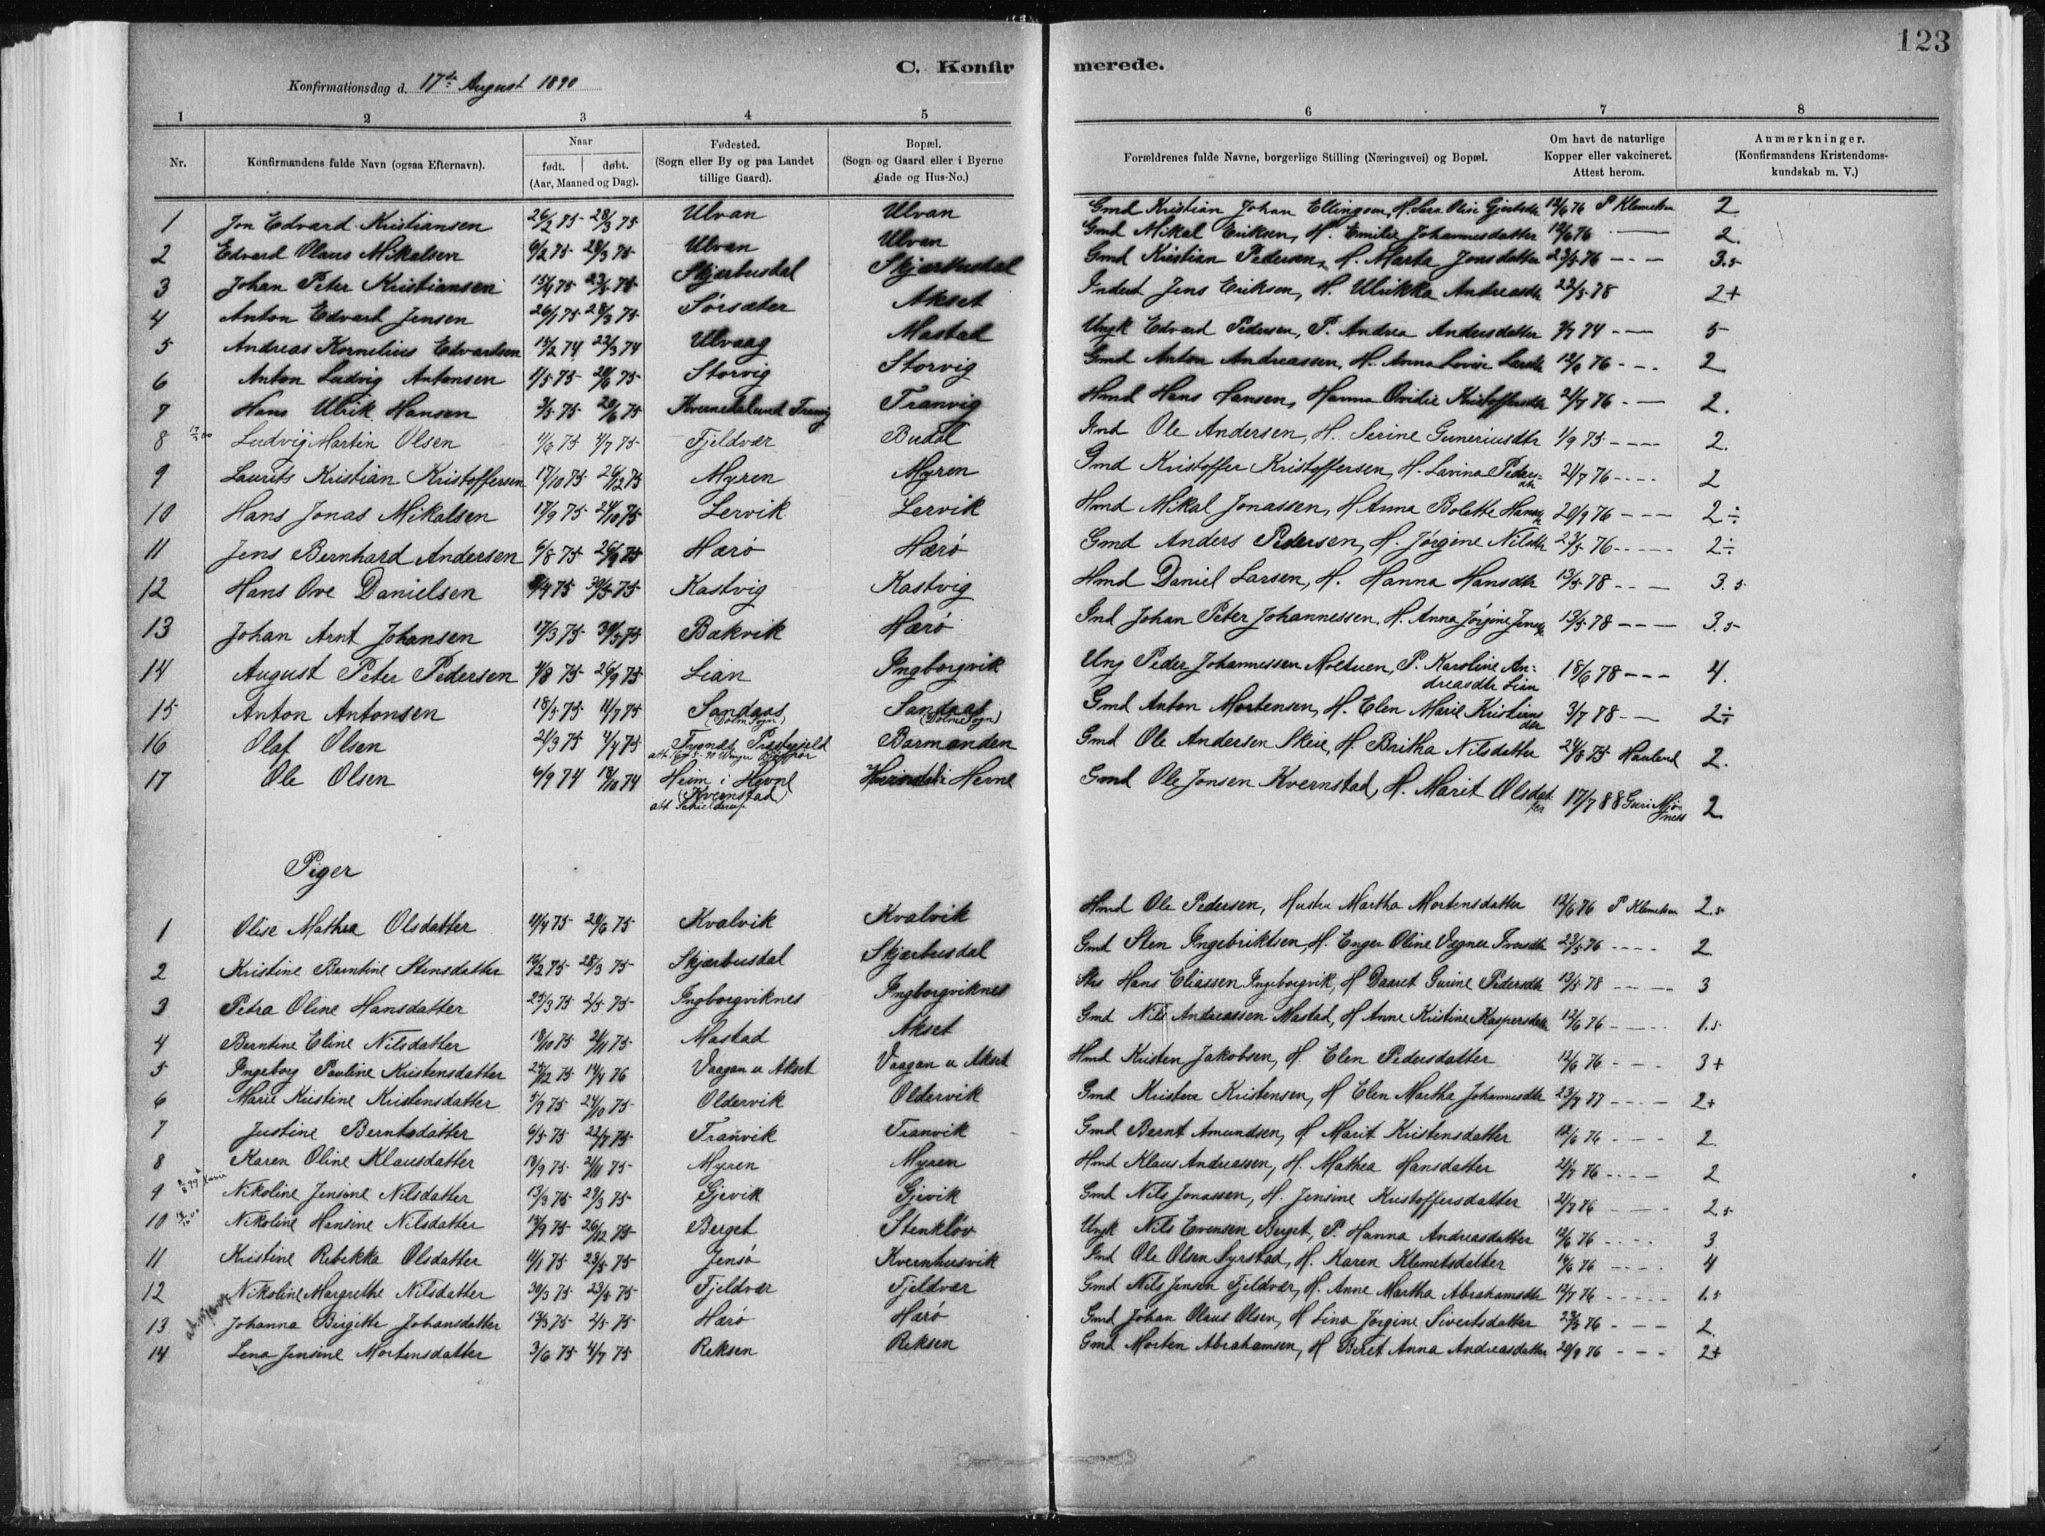 123
C. Konfirmerede.
Konfirmationsdag d. 17de August 1890
1 2 3 4 5 6 7 8
Nr. Konfirmandens fulde Navn (ogsaa Efternavn). Naar født. døbt. (Aar, Maaned og Dag). Fødested. (Sogn eller By og paa Landet tillige Gaard). Bopæl. (Sogn og Gaard eller i Byerne Gade og Hus-No.) Forældrenes fulde Navne, borgerlige Stilling (Næringsvei) og Bopæl. Om havt de naturlige Kopper eller vakcineret. Attest herom. Anmærkninger. (Konfirmandens Kristendomskundskab m. V.)
1 Jon Edvard Kristiansen 26/2 75 28/3 75 Ulvan Ulvan Gmd Kristian Johan Ellingsen, H. Sera Olise 12/6 76 P Klemetsen 2
2 Edvard Olaus Mikalsen 6/2 75 28/3 75 Ulvan Ulvan Gmd Mikal Eriksen, H. Emilie Johannesdatter 12/6 76 2.
3 Johan Peter Kristiansen 75 75 Skjærbusdal Skjærbusdal Gmd Kristian Pedersen, H. Marta Jonsdatter 23/5 76 3.5
4 Anton Edvart Jensen 26/1 75 28/3 75 Sørsæter Akset Inderst Jens Eriksen, H. Ulrikka Andreasdtr 22/5 78 2+
5 Andreas Kornelius Edvartsen 19/2 74 22/3 74 Ulvaag Mastad Ungk Edvard Pedersen, P. Andrea Andersdatter 74 5
6 Anton Ludvig Antonsen 1/5 75 20/6 75 Storvig Storvig Gmd Anton Andreassen, H. Anna Lovise 12/6 76 2
7 Hans Ulrik Hansen 3/5 75 20/6 75 Kvernedalund Tranvig Tranvig Hmd Hans Hansen, Hanna Ovidie Kristoffersdtr 21/7 76 2.
8 Ludvig Martin Olsen 1/6 75 4/7 75 Fjeldvær Budal Ind Ole Andersen, H. Serine Guneriusdtr 1/9 75 2.
9 Laurits Kristian Kristoffersen 17/10 75 26/12 75 Myren Myren Gmd Kristoffer Kristoffersen, H. Lavina Peders-dtr 21/7 76 2
10 Hans Jonas Mikalsen 17/9 75 24/10 75 Lervik Lervik Hmd Mikal Jonassen, H Anna Bolette 20/9 76 2÷
11 Jens Bernhard Andersen 6/8 75 26/9 75 Hærø Hærø Gmd Anders Pedersen, H. Jørgine Nilsdtr 23/5 76 2÷
12 Hans Ove Danielsen 75 30/5 75 Kastvig Kastvig Hmd Daniel Larsen, H. Hanna Hansdtr 13/5 78 3.5
13 Johan Arnt Johansen 17/3 75 30/5 75 Bakvik Hærø Ind Johan Peter Johannessen, H. Anna Jørgine 13/5 78 3.5
14 August Peter Pedersen 1/8 75 26/9 75 Lian Ingborgvik Ung Peder Johannessen, P. Karoline Andreasdtr Lian 18/6 78 4.
15 Anton Antonsen 18/5 75 11/7 75 Sandaas (Dolm Sogn) Sandaas (Dolme Sogn) Gmd Anton Mortensen, H. Elen Marie Kristiansdtr 3/7 78 2÷
16 Olaf Olsen 2/3 75 4/4 75 Tronde Præstegjeld Barmanden Gmd Ole Andersen Skeie, H. Britha Nilsdatter 24/8 75 2.
17 Ole Olsen 6/9 74 18/10 74 Heim i Hevne (Kvernstad) att Schielderup Hevne Gmd Ole Jonsen Kvernstad, H. Marit Olsdatter 17/7 88 2.
Piger
1 Olise Mathea Olsdatter 11/4 75 20/6 75 Kvalvik Kvalvik Hmd Ole Pedersen, Hustru Martha Mortensdatter 12/6 76 P Klemetsen 2.5
2 Kristine Berntine Stensdatter 75 28/3 75 Skjærbusdal Skjærbusdal Gmd Sten Ingebriktsen, H. Enger Oline 23/5 76 2
3 Petra Oline Hansdatter 25/3 75 2/5 75 Ingborgviknes Ingborgviknes Hans Eliassen Ingeborgvik, H Daaret Gurine Pedersdtr 13/5 78 3
4 Berntine Eline Nilsdatter 18/10 75 21/11 75 Mastad Akset Gmd Nils Andreassen Mastad, H Anne Kristine Kaspersdatter 12/6 76 1.5
5 Ingeborg Pauline Kristensdatter 75 14/4 76 Vaagan u Akset Vaagan u Akset Hmd Kristen Jakobsen, H. Elen Pedersdatter 12/6 76 3+
6 Marie Kristine Kristensdatter 5/9 75 24/10 75 Oldervik Oldervik Gmd Kristen Kristensen, H Elen Martha Johannesdtr 23/7 77 2+
7 Justine Berntsdatter 6/5 75 22/7 75 Tranvik Tranvik Gmd Bernt Amundsen, H Marit Kristensdatter 12/6 76 2
8 Karen Oline Klausdatter 18/9 75 21/11 75 Myren Myren Hmd Klaus Andreassen, H. Mathea Hansdatter 21/7 76 2
9 Nikoline Jensine Nilsdatter 13/3 75 29/3 75 Gjevik Gjevik Gmd Nils Jonassen, H. Jensine Kristoffersdatter 21/7 76 2.5
10 Nikoline Hansine Nilsdatter 75 26/12 75 Berget Stenkløv Ungk Nils Evensen Berget, P. Hanna Andreasdatter 76 3
11 Kristine Rebekka Olsdatter 11/1 75 23/5 75 Jensø Kvernhusvik Gmd Ole Olsen Syrstad, H. Karen Klemetsdatter 76 4
12 Nikoline Margrethe Nilsdatter 30/3 75 23/5 75 Fjeldvær Fjeldvær Gmd Nils Jensen Fjeldvær, H. Anne Martha Abrahamsdtr 76 1.5
13 Johanna Birgitte Johansdatter 75 2/5 75 Hærø Hærø Gmd Johan Olaus Olsen, H Lina Jørgine Sivertsdatter 76 2.
14 Lena Jensine Mortensdatter 3/6 75 4/7 75 Reksen Reksen Gmd Morten Abrahamsen, H Beret Anna Andreasdatter 20/9 76 2+